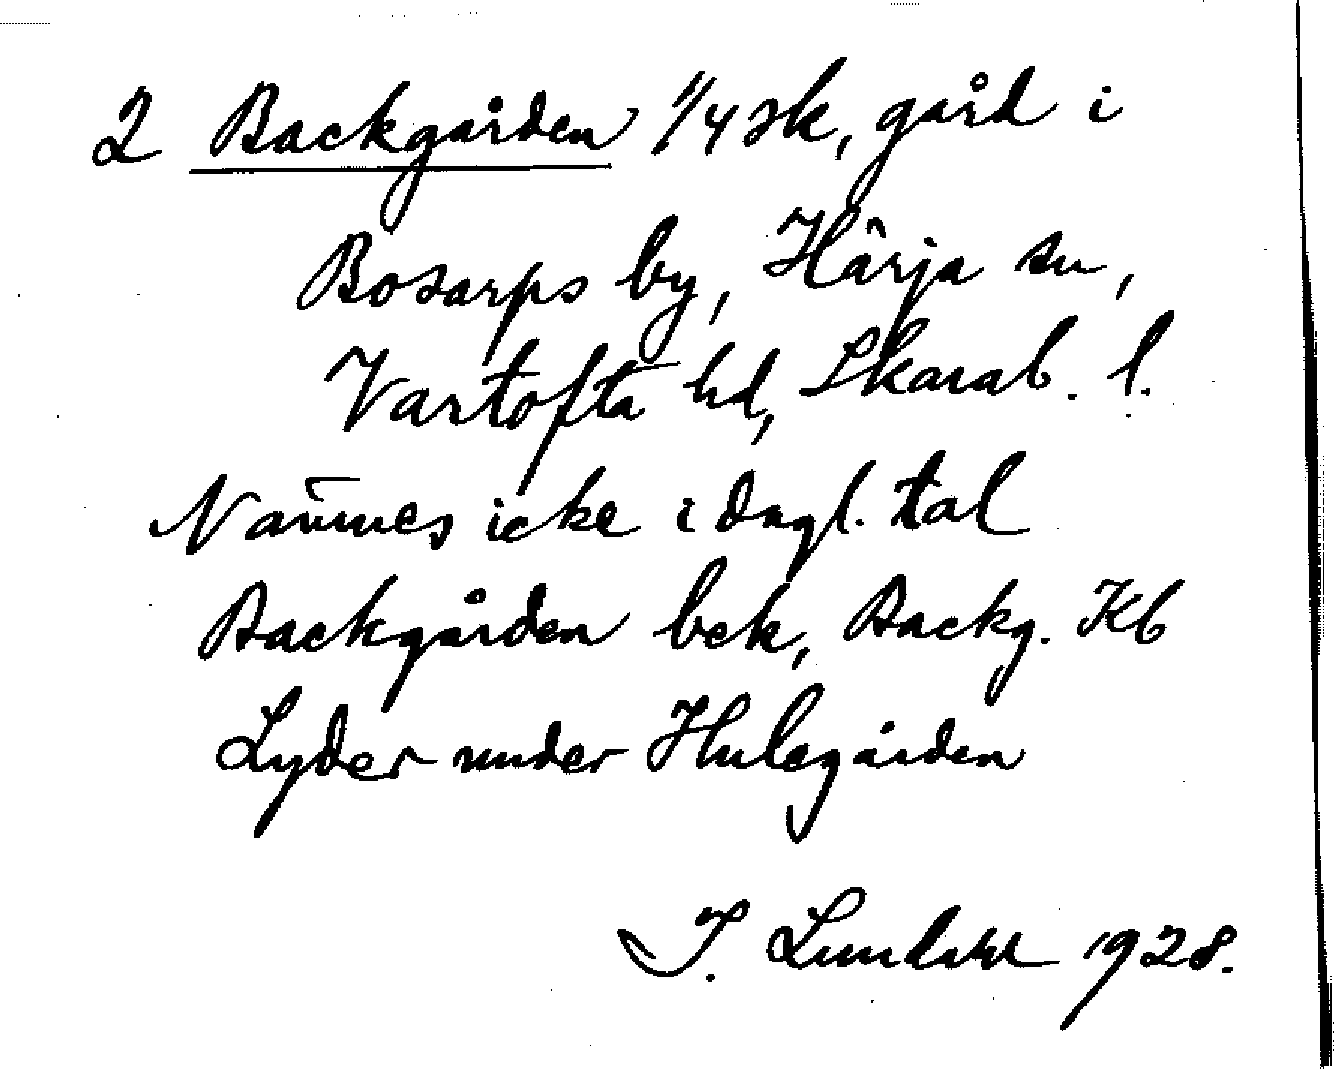 2 Backgården 1/4 sk, gård i
Bosarps by, Härja sn,
Vartofta hd, Skarab. l.
Nämnes icke i dagl. tal
Backgården bek, Backg. Kb
Lyder under Hulegården
I. Lundahl 1928.